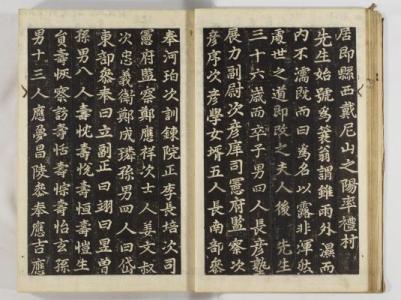 居即縣西戴尼山之陽率禮村
先生始號爲蓑翁謂雖雨外濕而
內不濡旣而曰爲名以露非渾狀
處世之道即改之夫人後 先生
三十六歲而卒子男四人長彥塾
展力副尉次彥庠司憲府監察次
彥序次彥學女壻五人長南部參
奉河珀次訓鍊院正李長培次司
憲府監察鄭應祥次士人姜文叔
次忠義衛鄭成璘孫男四人曰岱
東部參奉曰立副正曰翊曰昱曾
孫男八人壽忱壽恒壽愷生
員壽恢察訪壽恬壽悰壽怡玄孫
男十三人應曼昌陵參奉應吉應